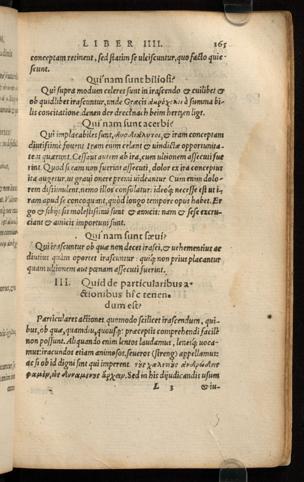 LIBER IIII. 165
conceptam retinent, sed statim se ulciscuntur, quo facto quie-
scunt.
Qui nam sunt biliosi?
Qui supra modum celeres sunt in irascendo & cuilibet &
ob quidlibet irascuntur, unde Græcis ἀκρόχολοι à summa bi-
lis concitatione denen der dreck nach beim hertzen ligt.
Qui nam sunt acerbi?
Qui implacabiles sunt, δυσδιάλυτοι, & iram conceptam
diutissime fovent iram eum celant & vindictæ opportunita-
tem quærunt. Cessant autem ab ira, cum ultionem assecuti fue
rint. Quod si eam non fuerint assecuti, dolor ex ira conceptus
ita augetur, ut gravi onere pressi videantur. Cum enim dolo-
rem dissimulent, nemo illos consolatur: ideoq; necesse est ut i-
ram apud se concoquant, quod longo tempore opus habet. Er
go & sibijpsis molestissimi sunt & amicis: nam & sese excru-
ciant & amicis importuni sunt.
Qui nam sunt sævi?
Qui irascuntur ob quæ non decet irasci, & vehementius ac
diutius quàm oportet irascuntur: quiq; non prius placantur
quam ultionem aut pœnam assecuti fuerint.
III. Quid de particularibus a-
ctionibus hîc tenen-
dum est?
Particulares actiones quomodo scilicet irascendum, qui-
bus, ob quæ, quamdiu, quousq; præceptis comprehendi facilè
non possunt. Aliquando enim lentos laudamus, lenesq; uoca-
mus: iracundos etiam animosos, severos (streng) appellamus:
ac si ob id digni sint qui imperent τοὺς χαλεποὺς ἀνδρώδεις
φαμὲν, ὡς δυναμένους ἄρχειν. Sed in his dijudicandis usum
L 3 & iu-